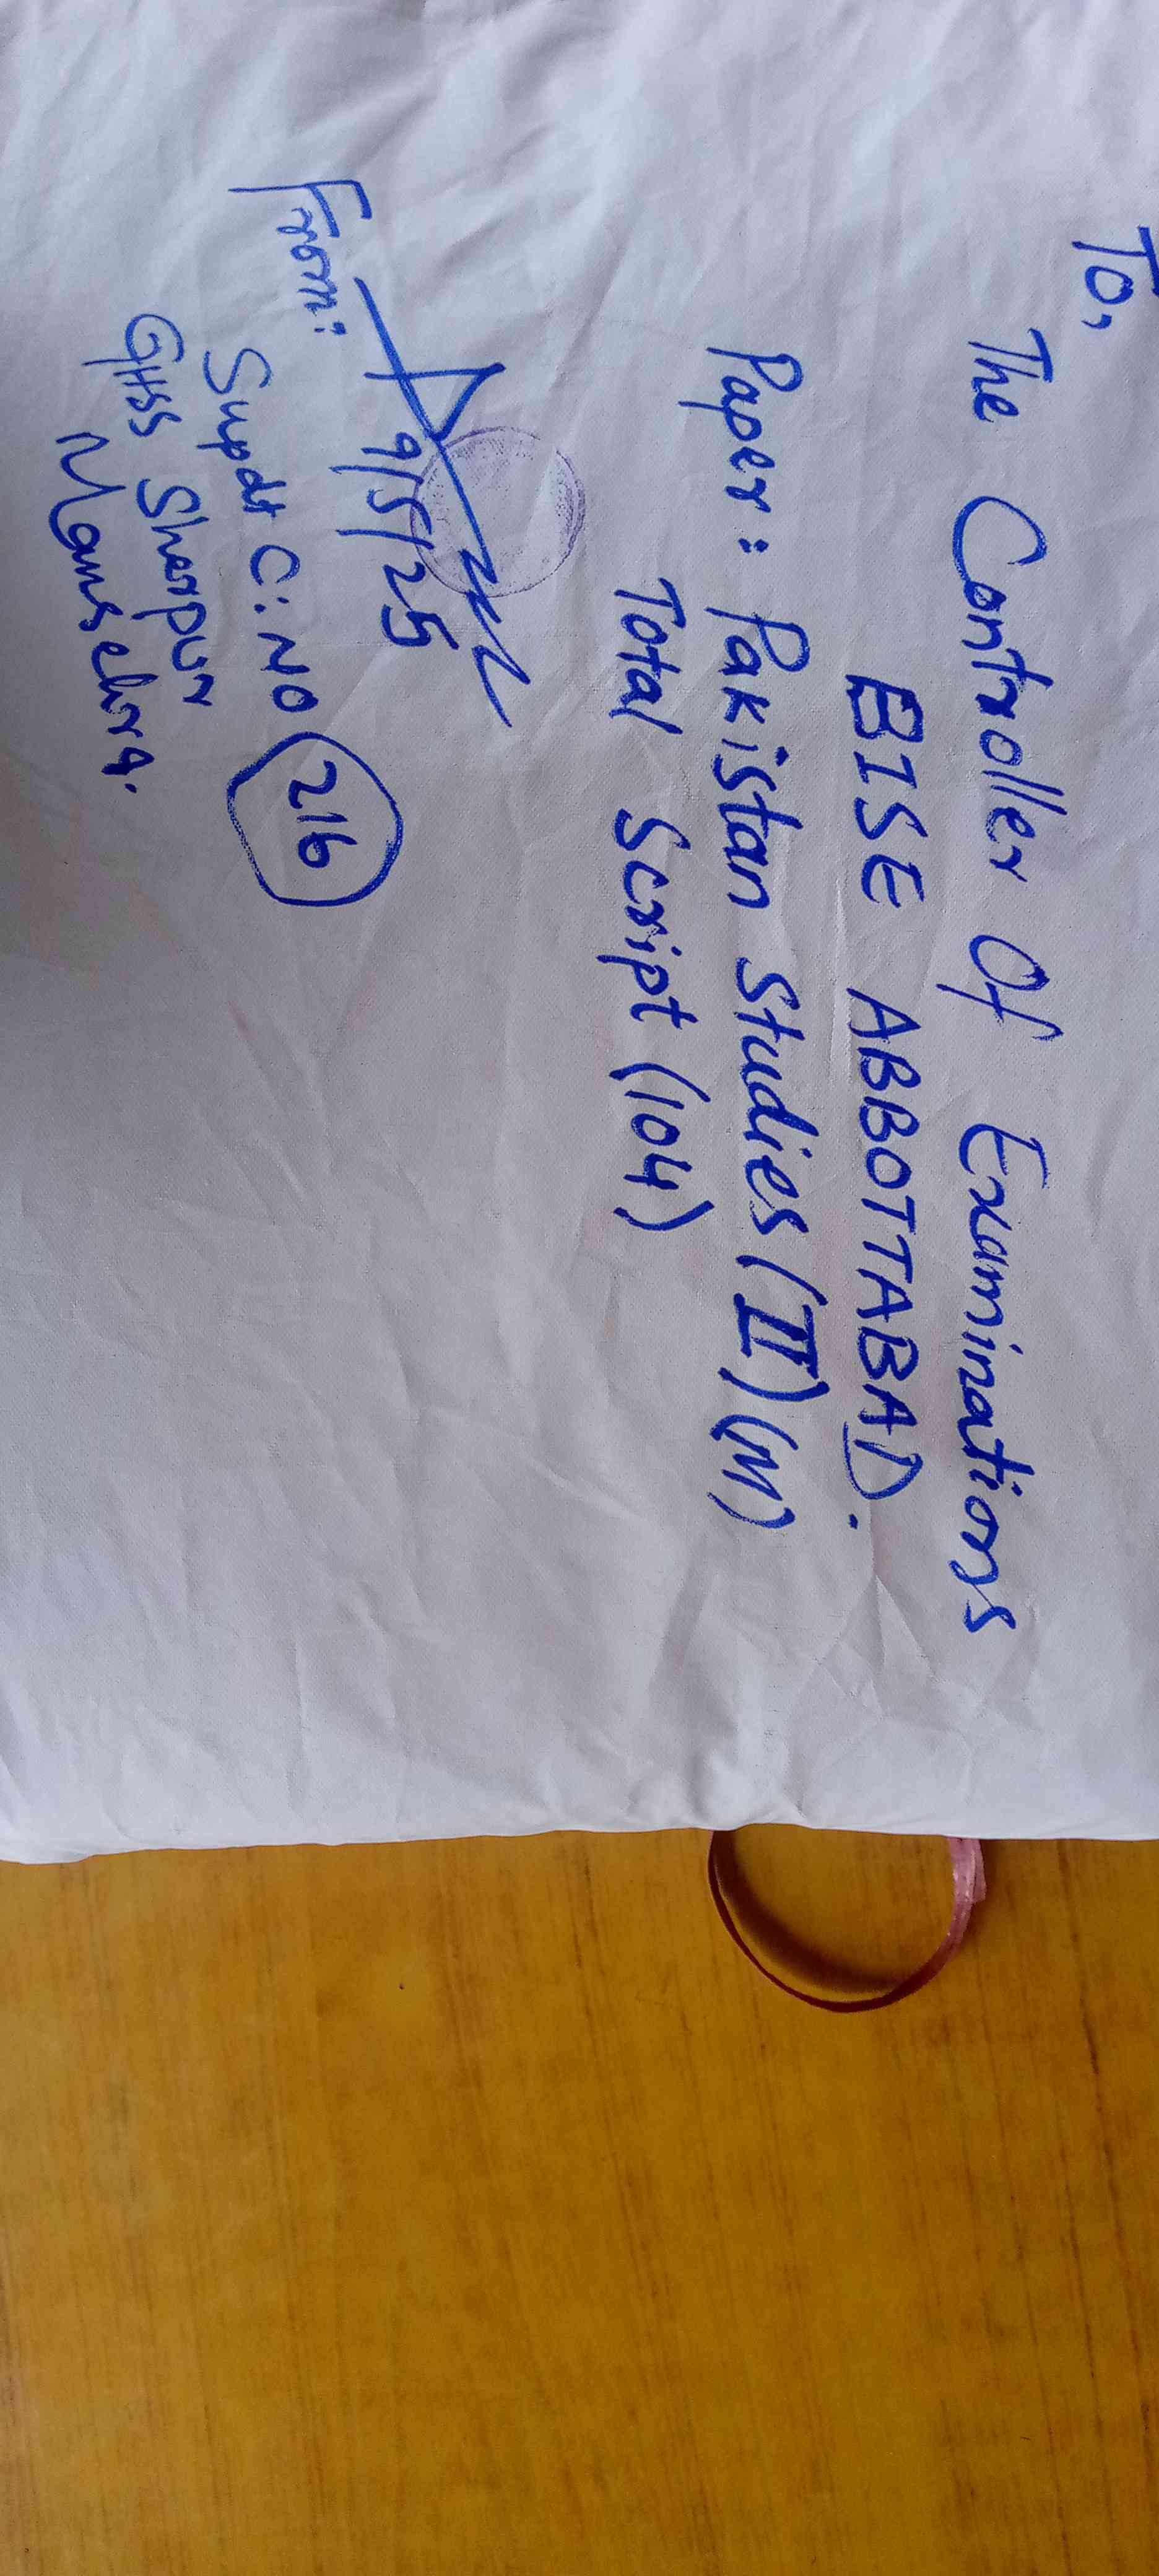 To,
The Controller Of Examinations
BISE ABBOTTABAD.
Paper: Pakistan Studies (II) (M)
Total Script (104)
9/5/25
From:
Supdt C: NO 216
GHSS Sherpur
Mansehra.